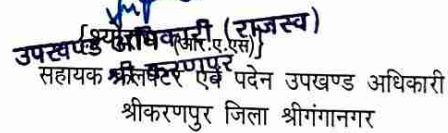 उपखण्ड अधिकारी (राजस्व)
(आर.ए.एस)}
श्री करणपुर
सहायक कलेक्टर एवं पदेन उपखण्ड अधिकारी
श्रीकरणपुर जिला श्रीगंगानगर